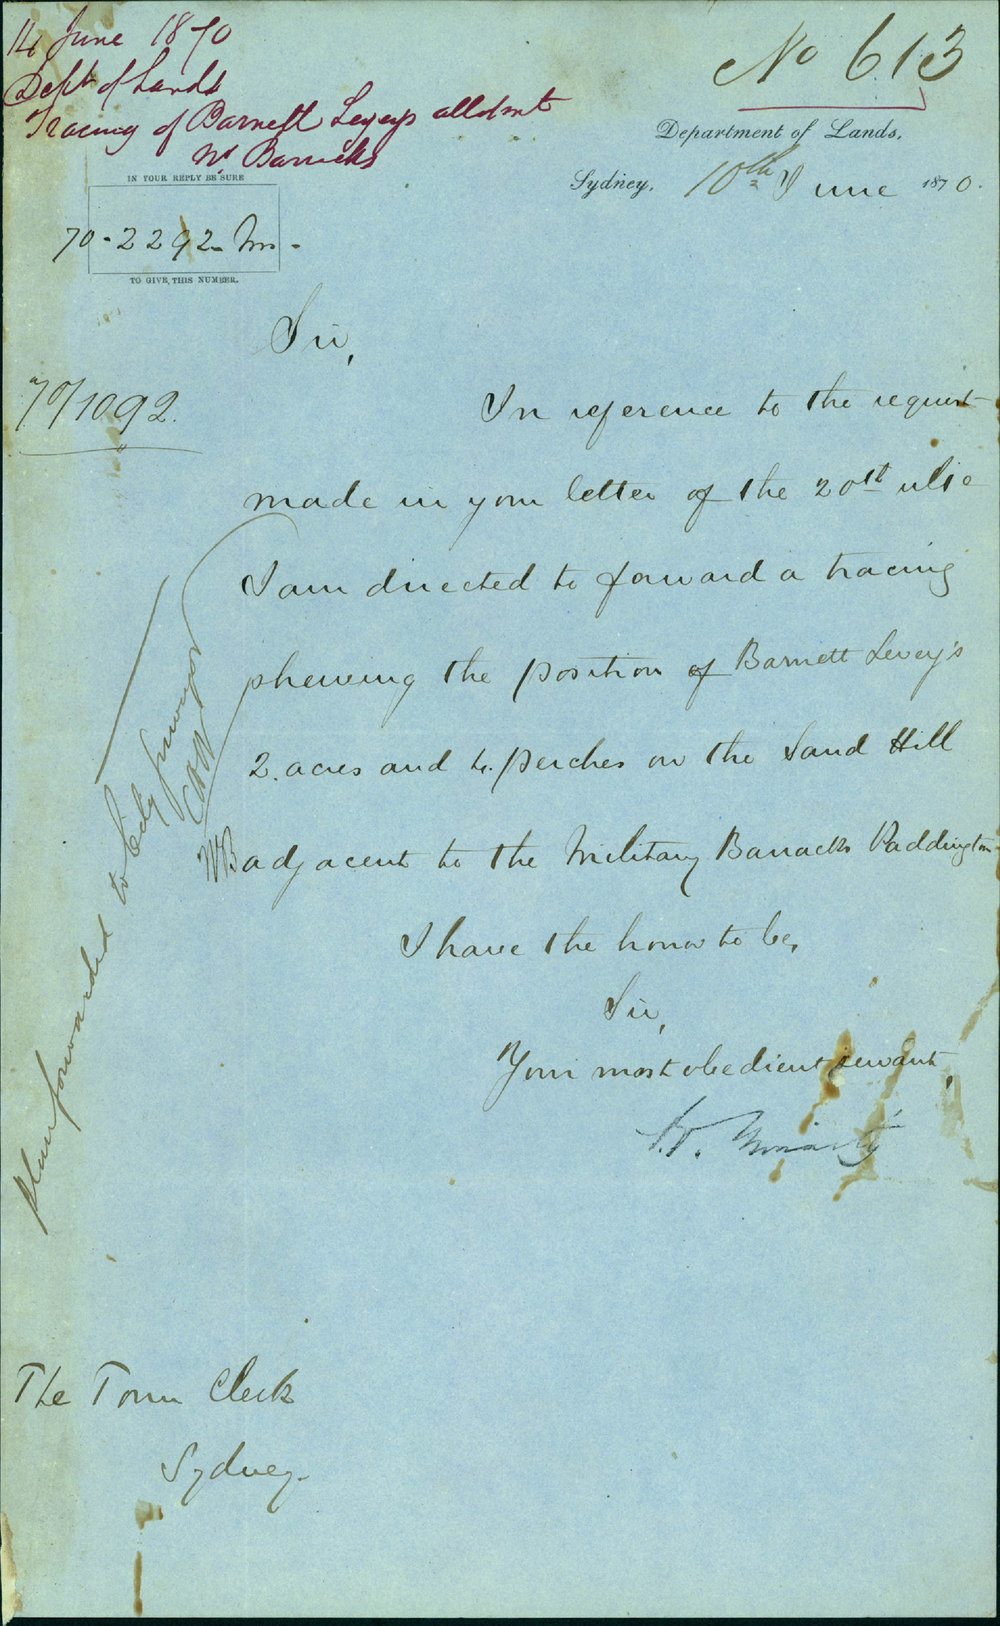 14 June 1870
Dept of Lands
Tracing of Barnett Levey's allotmt
Nr Barracks
No 613
Department of Lands,
Sydney, 10th June 1870.
IN YOUR REPLY BE SURE
70-2292 Ms.
TO GIVE THIS NUMBER.
Sir,
70/1092.
In reference to the request
made in your letter of the 20th ulto
I am directed to forward a tracing
shewing the position of Barnett Levey's
2. acres and 4. perches on the Sand Hill
adjacent to the Military Barracks Paddington
I have the honor to be,
Sir,
Your most obedient servant,
Moriarty
Plan forwarded to City Surveyor
The Town Clerk
Sydney.